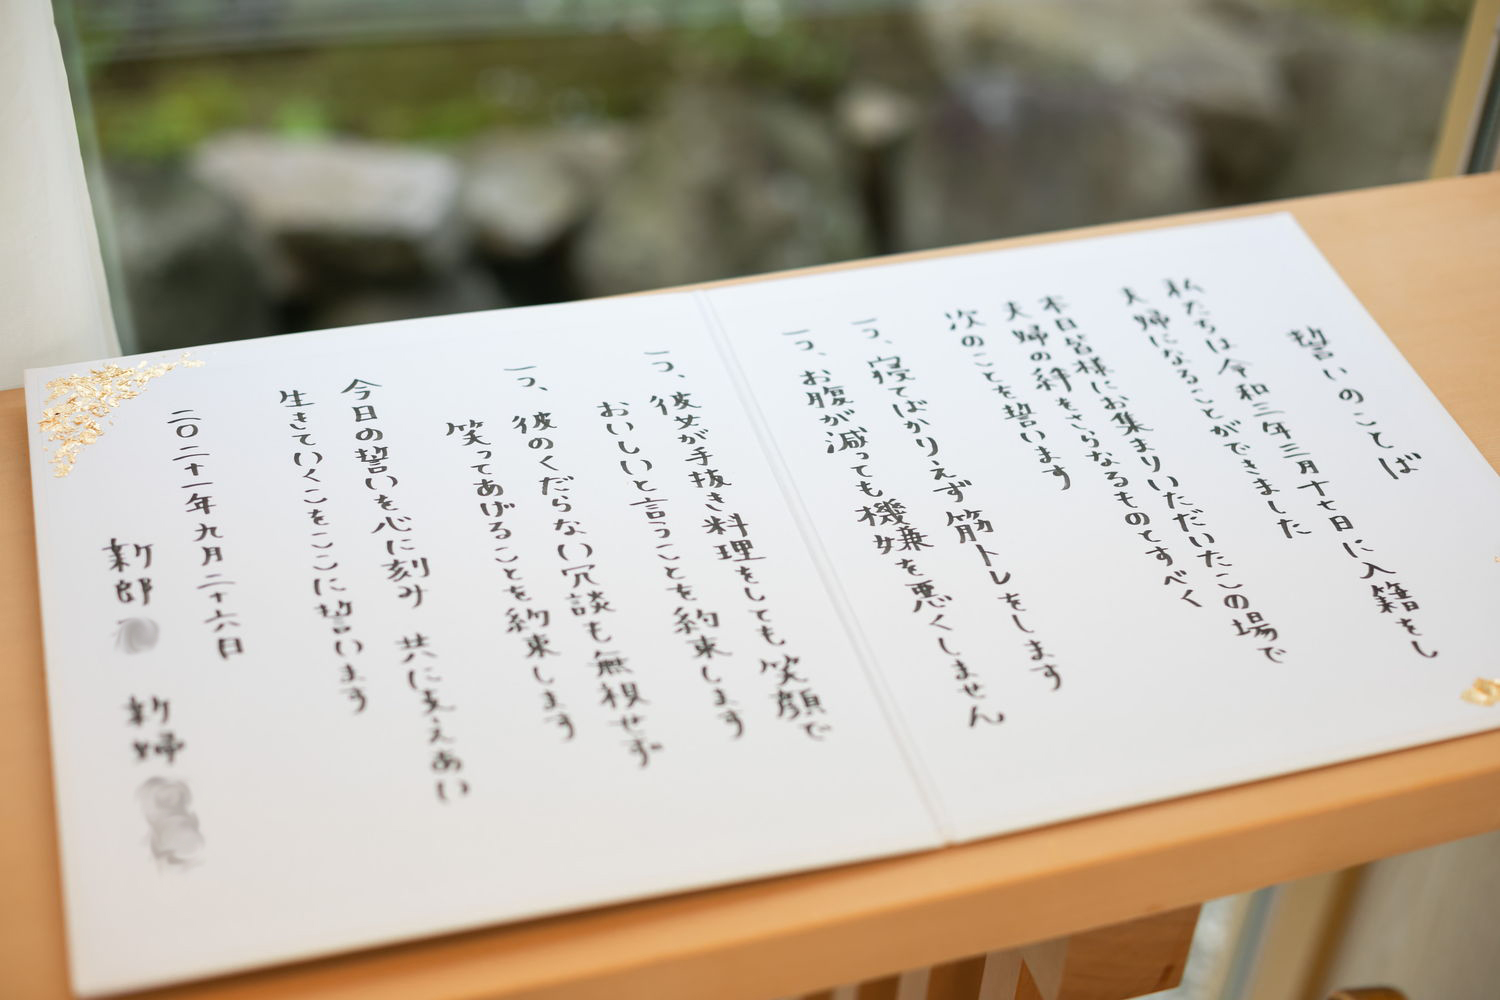 誓いのことば
私たちは令和三年三月十七日に入籍をし
夫婦になることができました
本日皆様にお集まりいただいたこの場で
夫婦の絆をさらなるものとすべく
次のことを誓います
一つ、寝てばかりえず筋トレをします
一つ、お腹が減っても機嫌を悪くしません
一つ、彼女が手抜き料理をしても笑顔で
おいしいと言うことを約束します
一つ、彼のくだらない冗談も無視せず
笑ってあげることを約束します
今日の誓いを心に刻み 共に支えあい
生きていくことをここに誓います
二〇二十一年九月二十六日
新郎
新婦